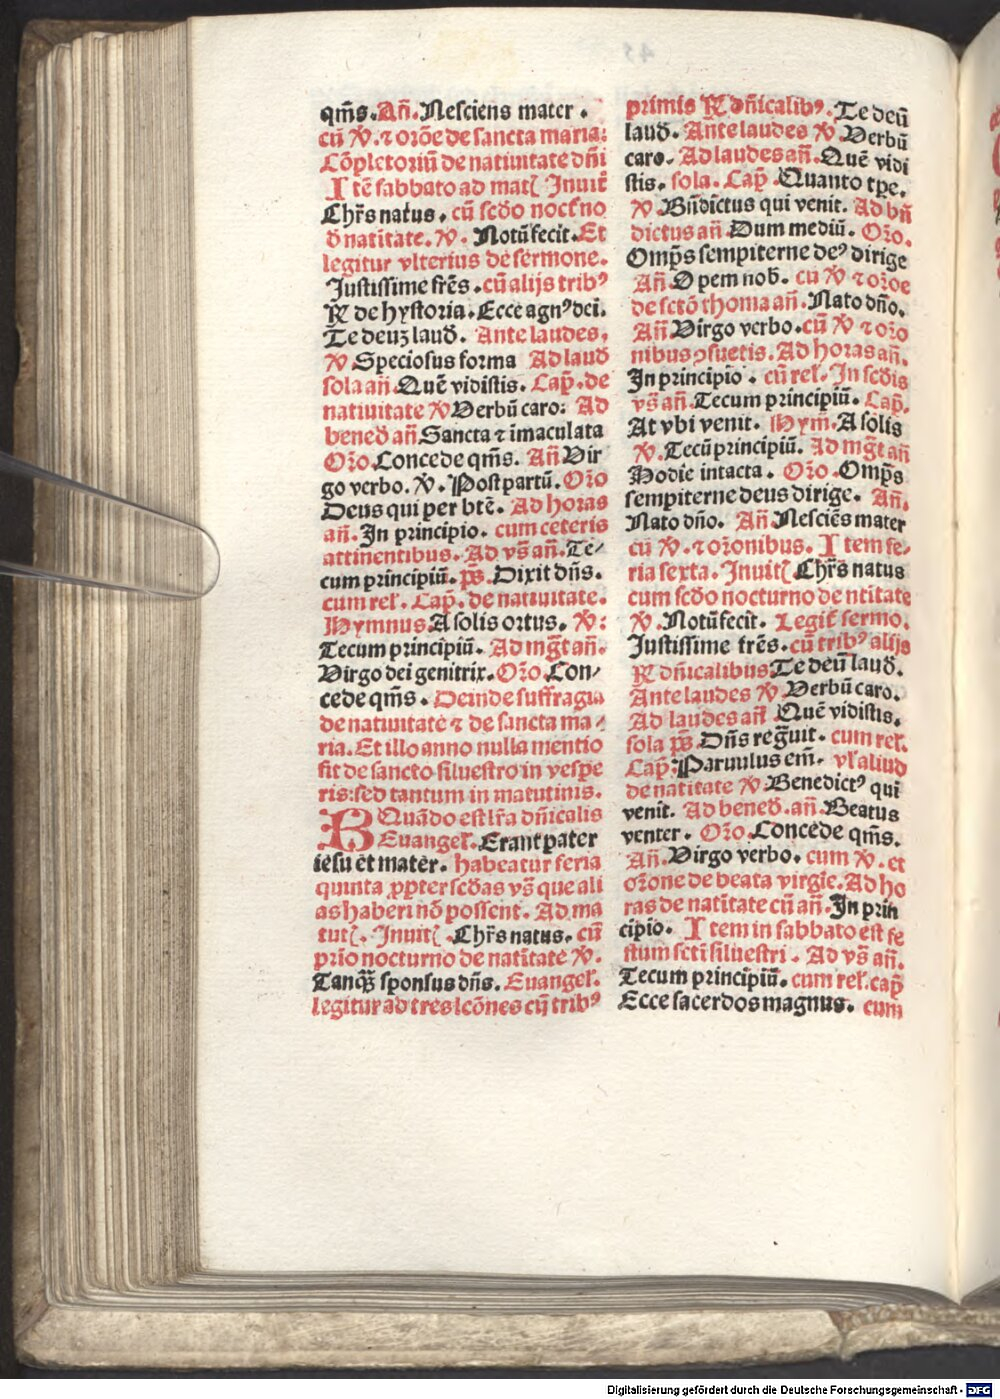 qm̄s. Añ. Nesciens mater.
cū ℣. ⁊ orōe de sancta maria:
Cōpletoriū de natiuitate dn̄i
Itē sabbato ad mat᷑ Inuit᷑
Chr̄s natus. cū scd̄o noct᷑no
d̄ natītate. ℣. Notū fecit. Et
legitur vlterius de sermone.
Justissime fr̄es. cū alijs tribꝰ
℟ de hystoria. Ecce agnꝰ dei.
Te deuʒ laud̄. Ante laudes,
℣ Speciosus forma Ad laud̄
sola añ. Quē vidistis. Cap̄. de
natiuitate ℣ Verbū caro: Ad
bened̄ añ Sancta ⁊ īmaculata
Oꝛ̄o. Concede qm̄s. Añ Vir
go verbo. ℣. Post partū. Oꝛ̄o
Deus qui per btē. Ad horas
añ. In principio. cum ceteris
attinentibus. Ad vs̄ añ. Te⸗
cum principiū. ps̄. Dixit dn̄s.
cum rel᷑. Cap̄. de natiuitate.
Hymnus A solis ortus. ℣:
Tecum principiū. Ad mgt̄ añ.
Virgo dei genitrix. Oꝛ̄o. Con⸗
cede qm̄s. Deinde suffragia
de natiuitate ⁊ de sancta ma⸗
ria. Et illo anno nulla mentio
fit de sancto siluestro in vespe
ris: sed tantum in matutinis.
Quādo est lr̄a dn̄icalis
B Euangel᷑. Erant pater
iesu et mater. habeatur feria
quinta ꝓpter scd̄as vs̄ que ali
as haberi nō possent. Ad ma
tut᷑. Inuit᷑. Chr̄s natus. cū
prīo nocturno de natītate ℣.
Tanqꝫ sponsus dn̄s. Euangel᷑.
legitur ad tres lcōnes cū tribꝰ
primis ℟ dn̄icalibꝰ. Te deū
laud̄. Ante laudes ℣. Verbū
caro. Ad laudes añ. Quē vidi
stis. sola. Cap̄. Quanto tꝑe.
℣. Bn̄dictus qui venit. Ad bn̄
dictus añ Dum mediū. Oꝛ̄o.
Omp̄s sempiterne deꝰ dirige
Añ. O pem nob. cū ℣ ⁊ orōe
de sctō thoma añ. Nato dn̄o.
Añ. Virgo verbo. cū ℣ ⁊ orō
nibus ꝯsuetis. Ad horas añ.
In principio. cū rel᷑. In scd̄is
vs̄ añ. Tecum principiū. Cap̄.
At vbi venit. Hym̄. A solis
℣. Tecū principiū. Ad mgt̄ añ
Hodie intacta. Oꝛ̄o. Omp̄s
sempiterne deus dirige. Añ.
Nato dn̄o. Añ. Nesciēs mater
cū ℣. ⁊ orōnibus. Item fe⸗
ria sexta. Inuit᷑ Chr̄s natus
cum scd̄o nocturno de ntītate
℣. Notū fecit. Legit᷑ sermo.
Justissime fr̄es. cū tribꝰ alijs
℟ dn̄icalibus Te deū laud̄.
Ante laudes ℣. Verbū caro.
Ad laudes añ Quē vidistis.
sola ps̄ Dn̄s regn̄uit. cum rel᷑.
Cap̄: Paruulus em̄. vl᷑ aliud
de natītate ℣. Benedictꝰ qui
venit. Ad bened̄. añ. Beatus
venter. Oꝛ̄o. Concede qm̄s.
Añ. Virgo verbo. cum ℣. et
oꝛōne de beata virgīe. Ad ho
ras de natītate cū añ. In prin
cipio. Item in sabbato est fe
stum sctī siluestri. Ad vs̄ añ.
Tecum principiū. cum rel᷑. cap̄
Ecce sacerdos magnus. cum
Digitalisierung gefördert durch die Deutsche Forschungsgemeinschaft - DFG